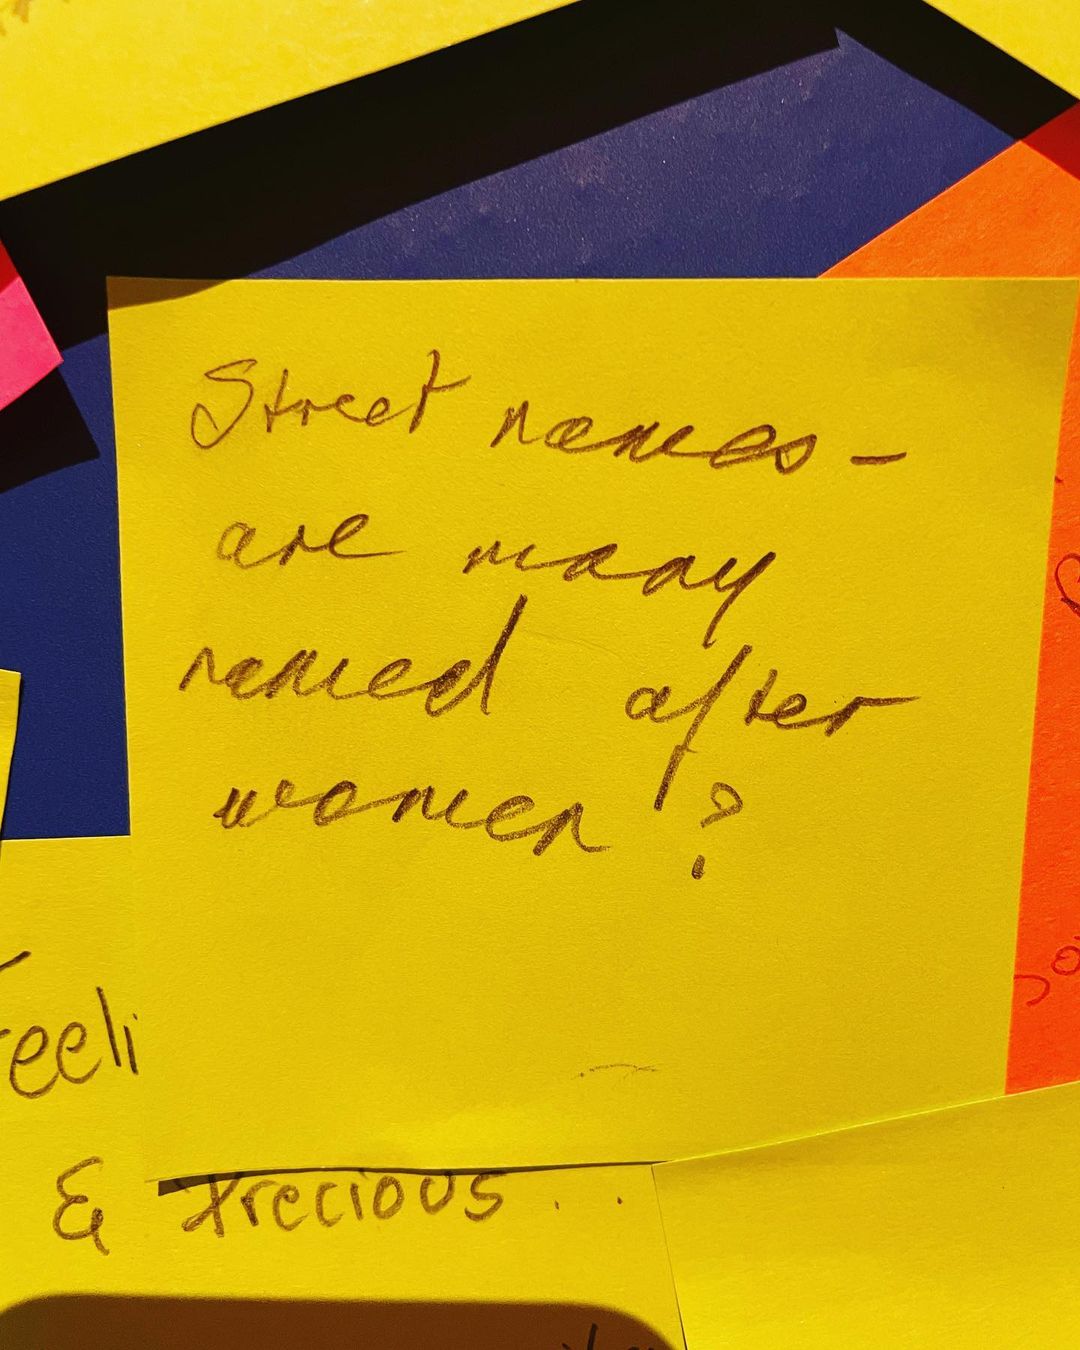 Street names -
are many
named after
women ?
Feeli
& Precious . .